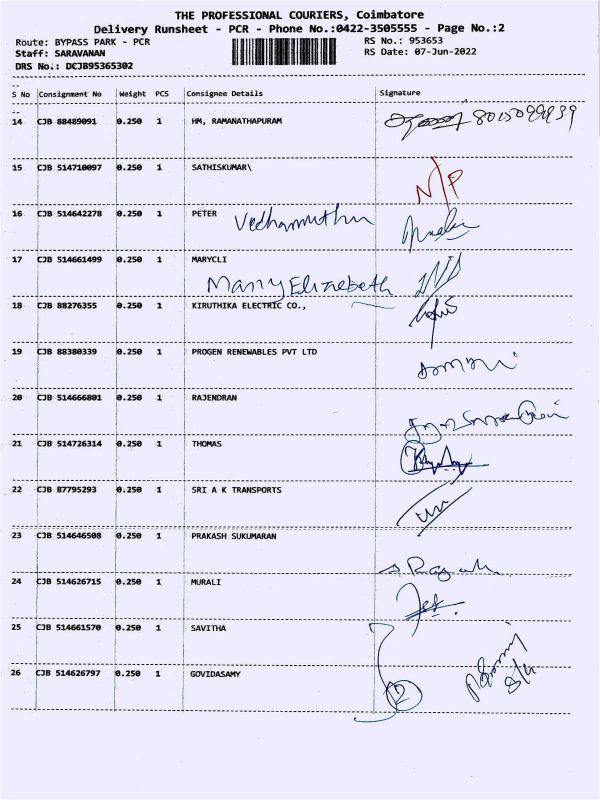 THE PROFESSIONAL COURIERS, Coimbatore
Delivery Runsheet - PCR - Phone No.:0422-3505555 - Page No.:2
Route: BYPASS PARK - PCR RS No.: 953653
Staff: SARAVANAN RS Date: 07-Jun-2022
DRS No.: DCJB95365302
S No Consignment No Weight PCS Consignee Details Signature
14 CJB 88489091 0.250 1 HM, RAMANATHAPURAM
15 CJB 514710097 0.250 1 SATHISKUMAR\ N/P
16 CJB 514642278 0.250 1 PETER Vedhamuthu
17 CJB 514661499 0.250 1 MARYCLI
Mary Elizebeth
18 CJB 88276355 0.250 1 KIRUTHIKA ELECTRIC CO.,
19 CJB 88380339 0.250 1 PROGEN RENEWABLES PVT LTD
20 CJB 514666801 0.250 1 RAJENDRAN
21 CJB 514726314 0.250 1 THOMAS
22 CJB 87795293 0.250 1 SRI A K TRANSPORTS
23 CJB 514646508 0.250 1 PRAKASH SUKUMARAN
24 CJB 514626715 0.250 1 MURALI
25 CJB 514661570 0.250 1 SAVITHA
26 CJB 514626797 0.250 1 GOVIDASAMY 2